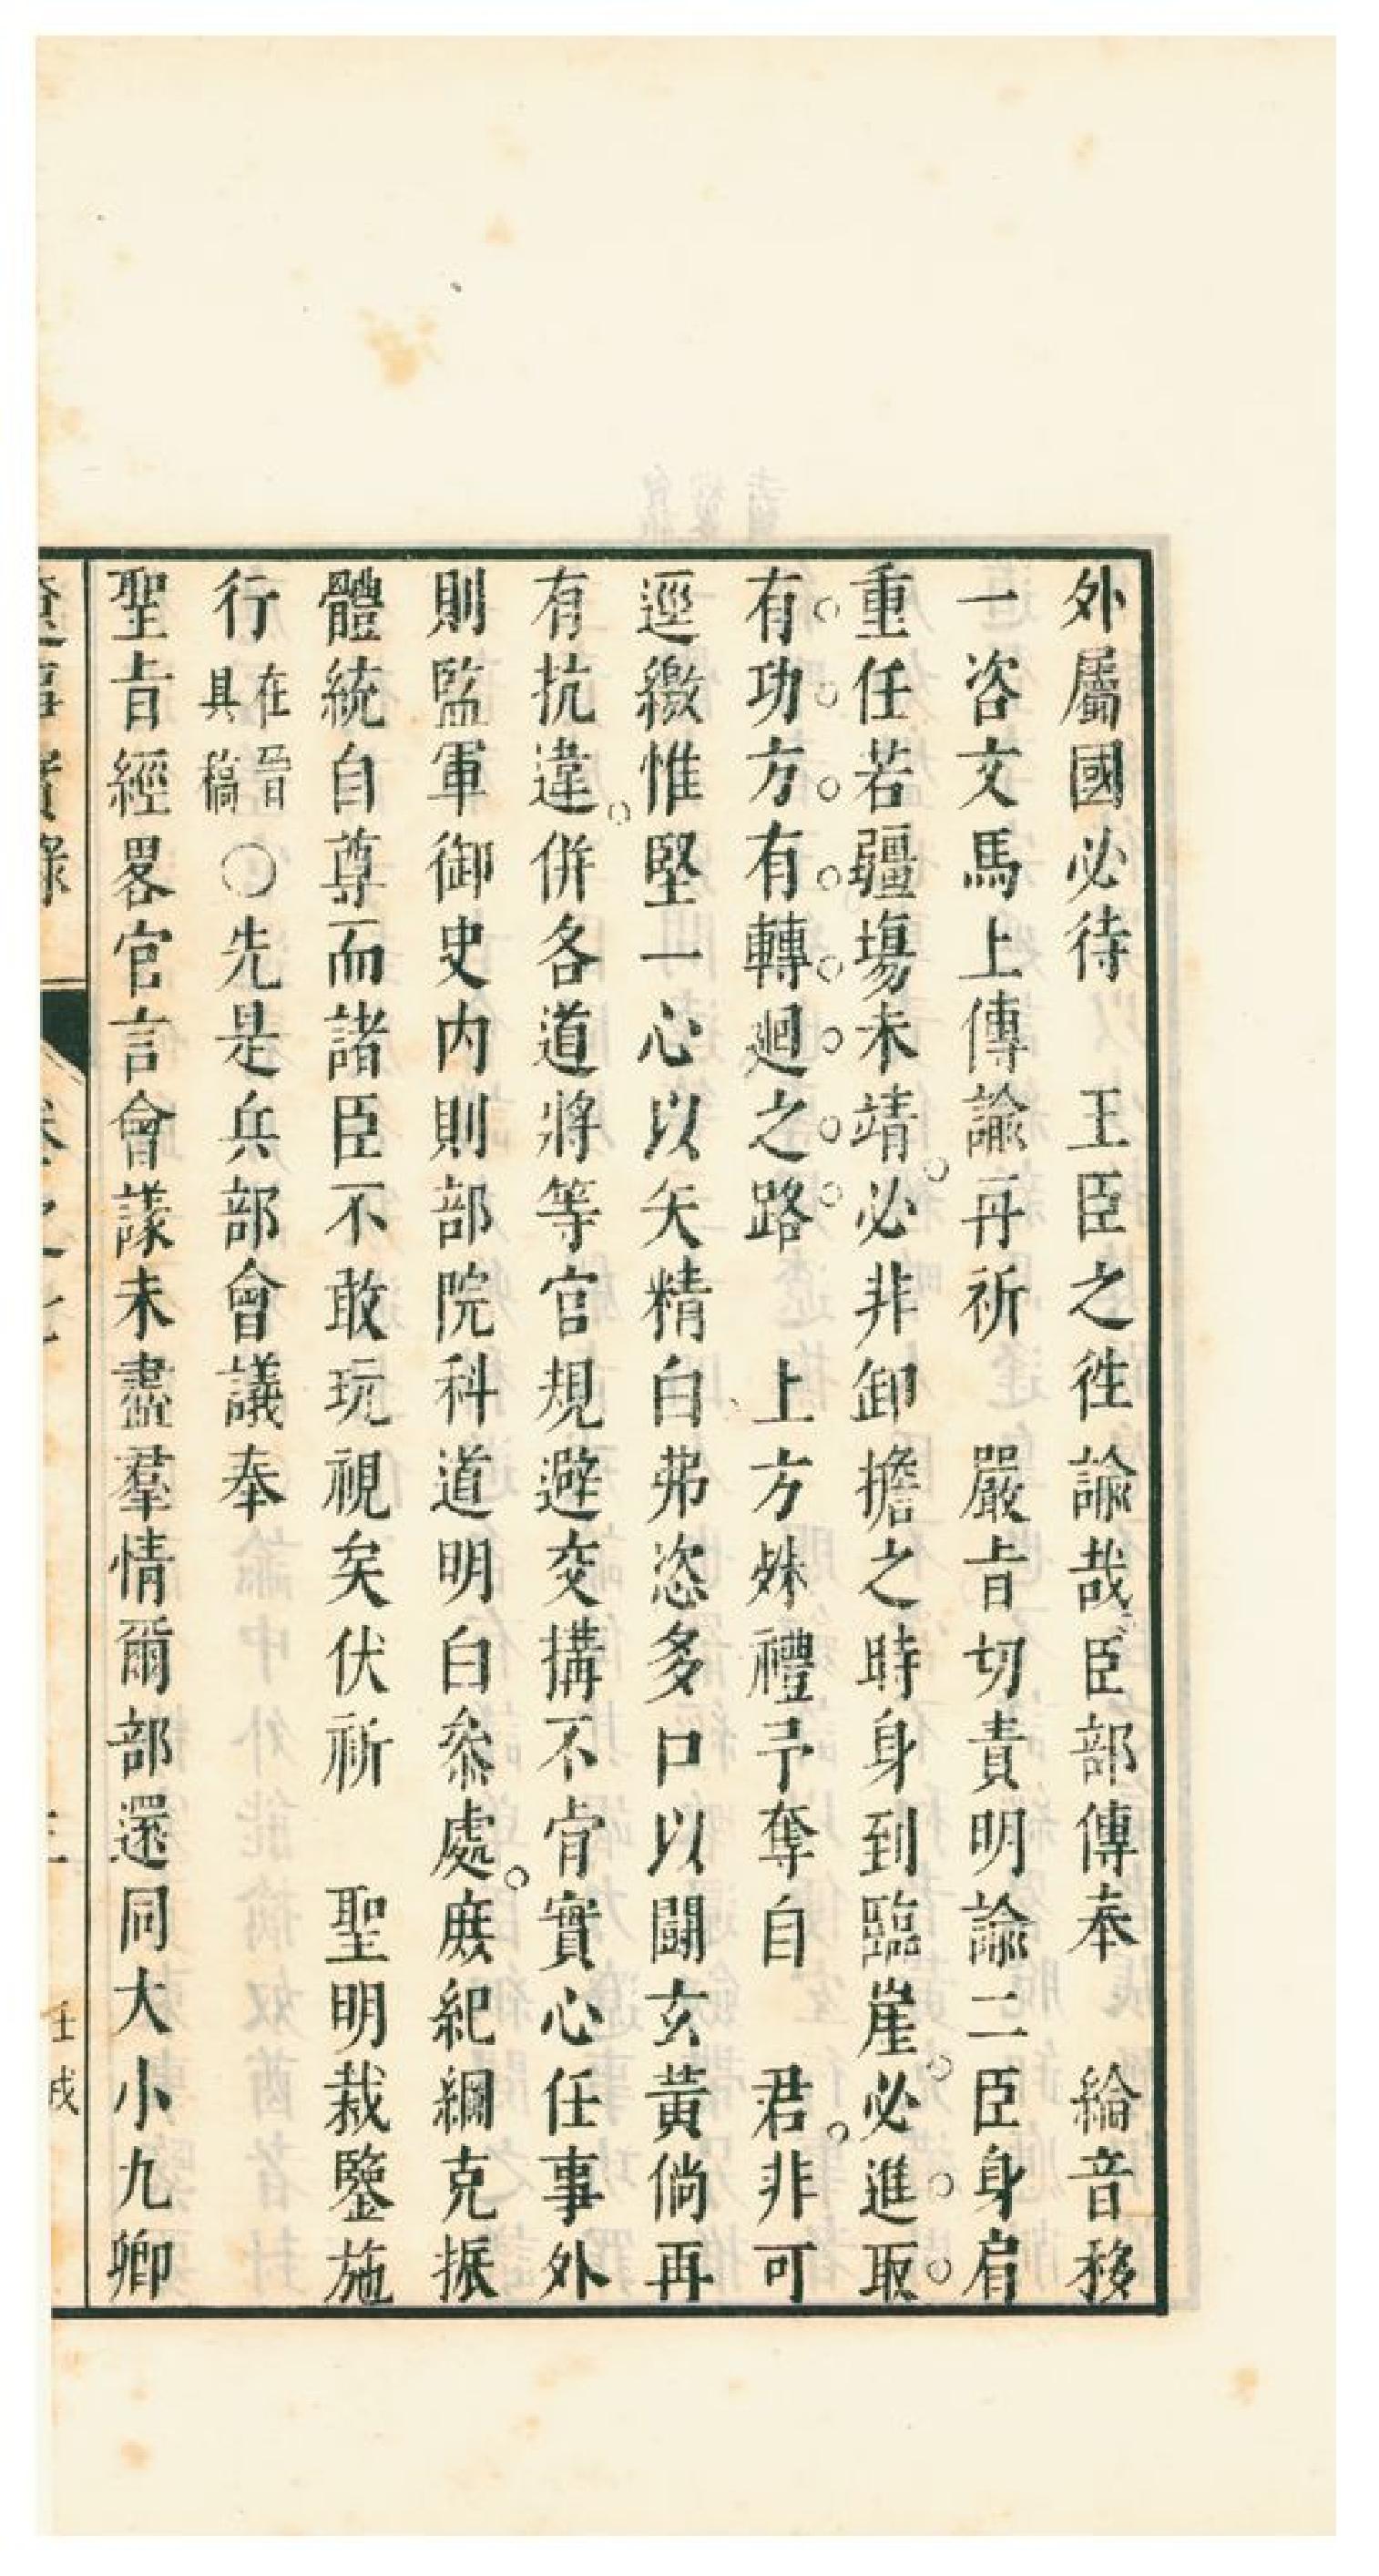 外屬國必待　王臣之徃諭哉臣部傳奉　綸音移
一咨文馬上傳諭再祈　嚴旨切責明諭二臣身肩
重任若疆塲未靖必非卸擔之時身到臨崖必進取
有功方有轉迴之路　上方殊禮予奪自　君非可
逕繳惟堅一心以矢精白弗恣多口以鬪玄黃倘再
有抗違併各道將等官規避交搆不肯實心任事外
則監軍御史内則部院科道明白叅處庻紀綱克振
體統自尊而諸臣不敢玩視矣伏祈　聖明裁鑒施
行在晉具稿〇先是兵部會議奉
聖旨經畧官言會議未盡羣情爾部還同大小九卿